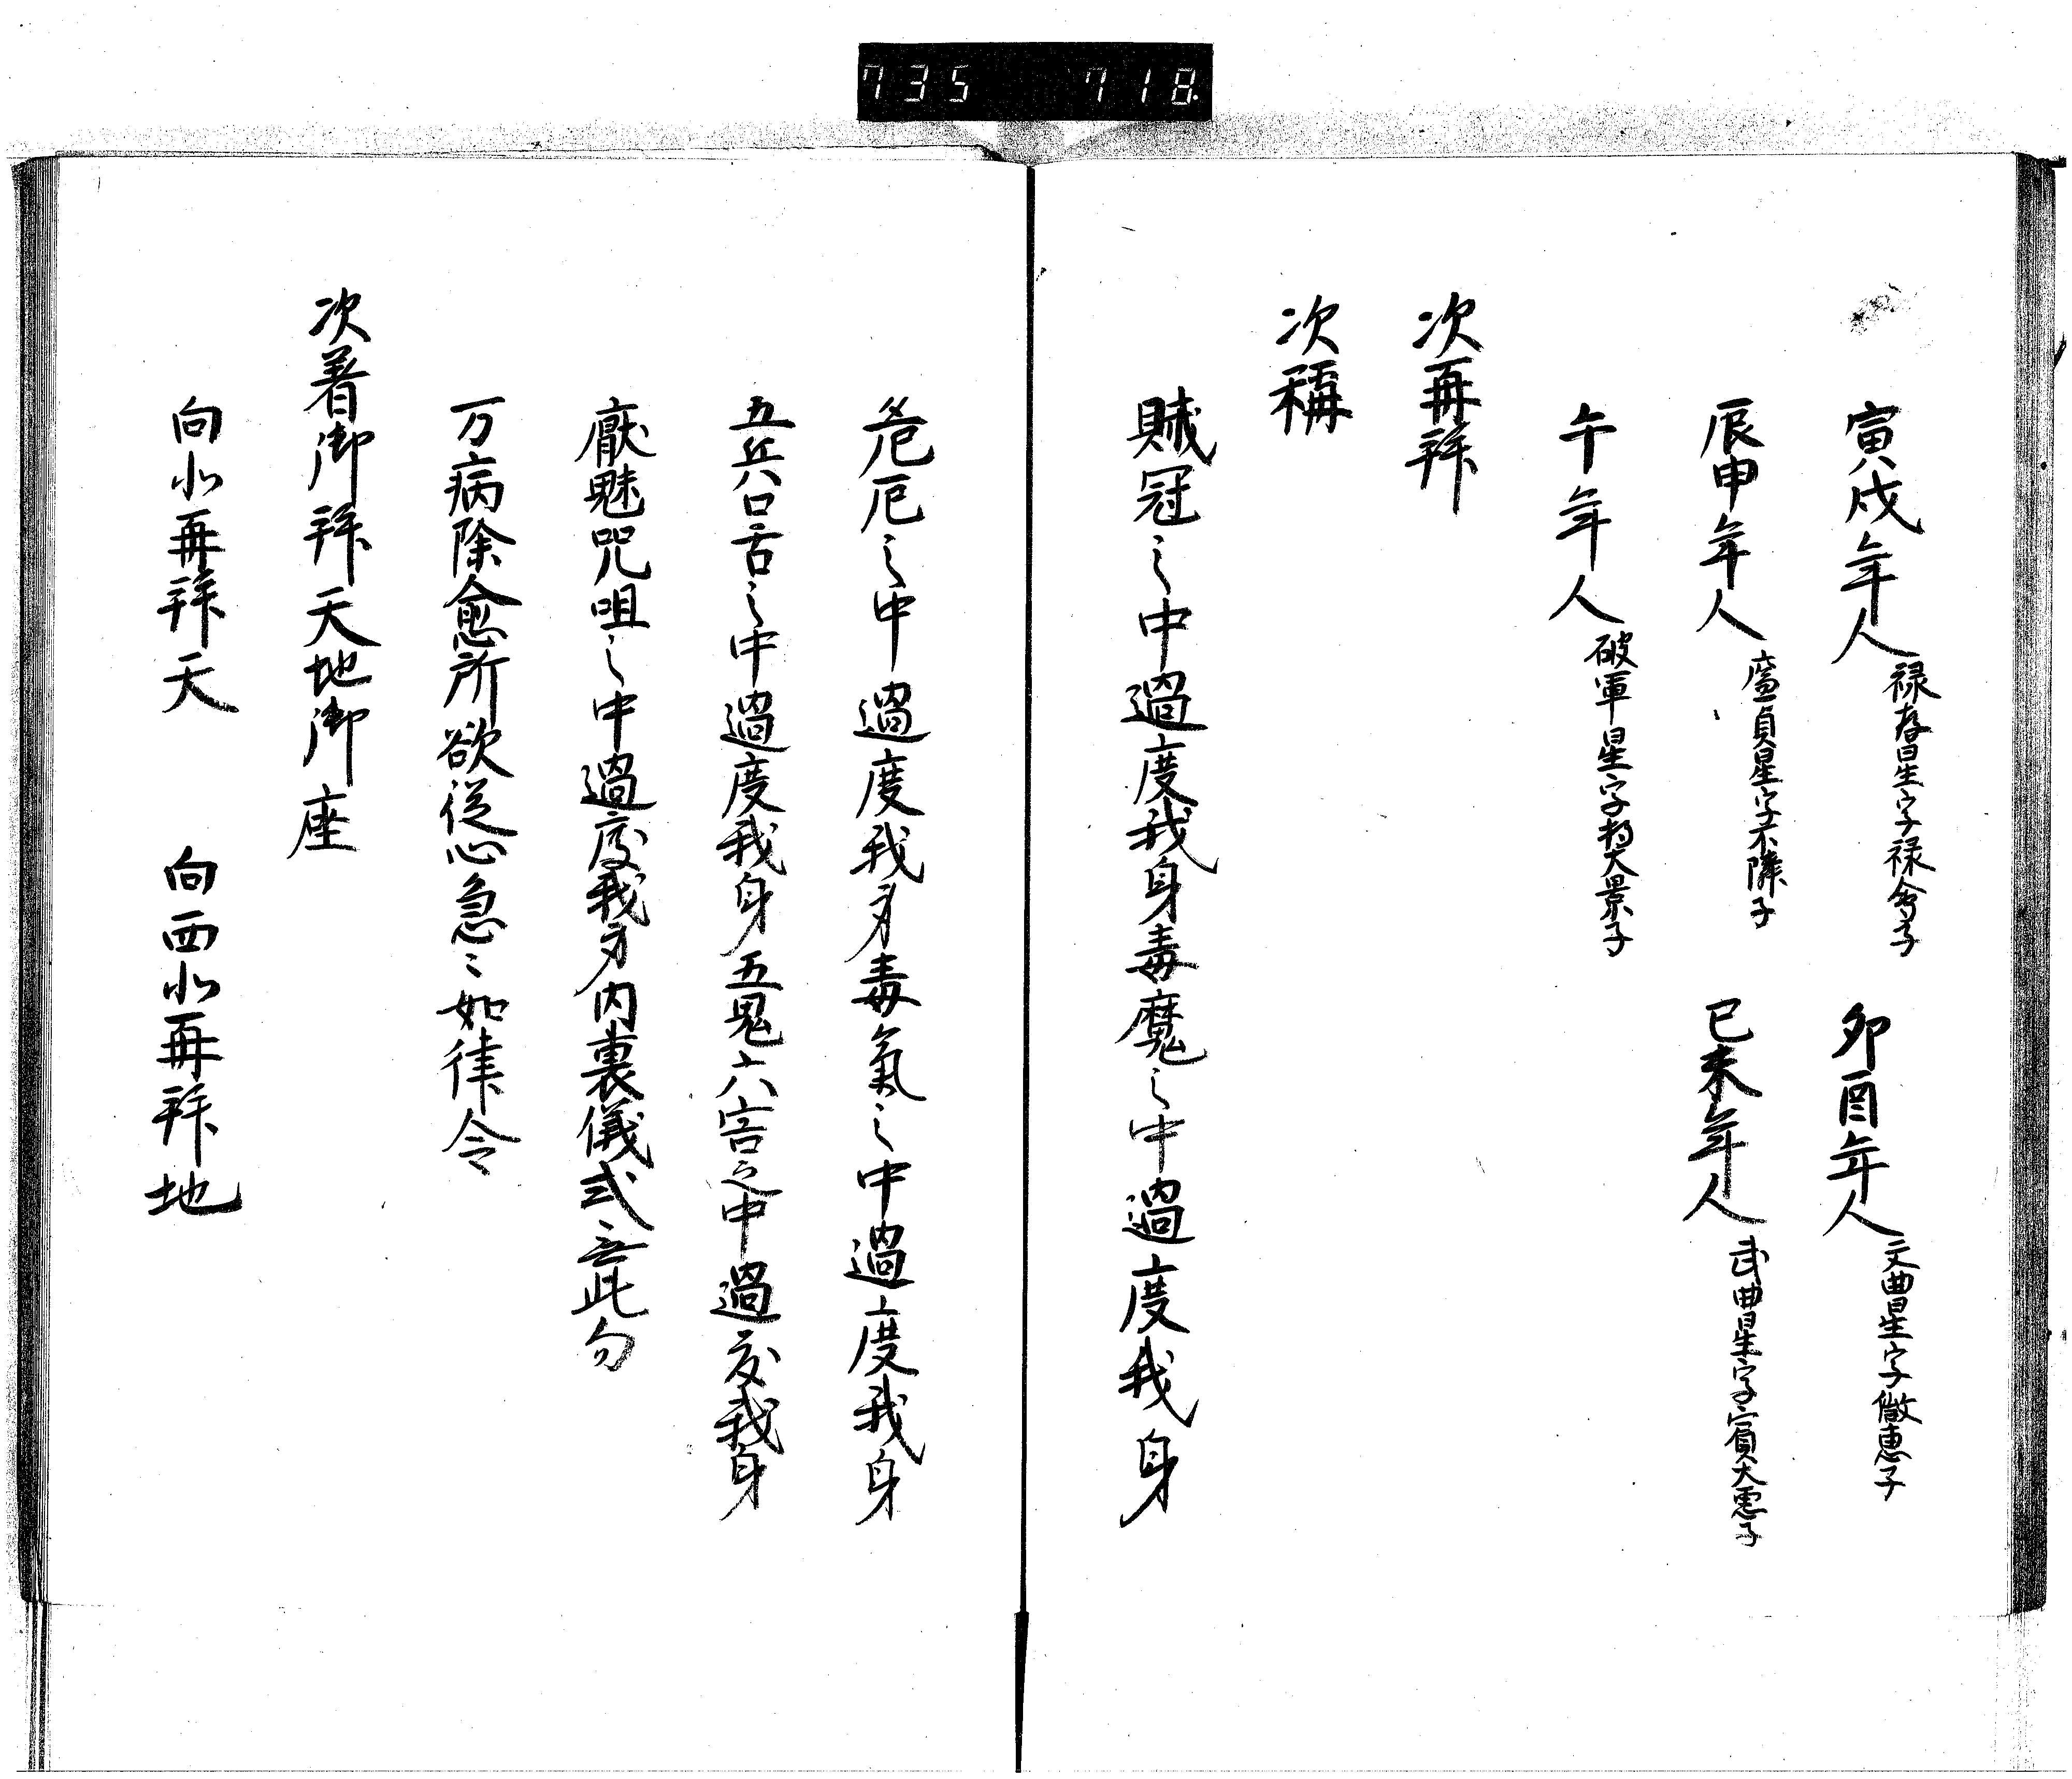 735 718
寅戌年人禄存星字禄會子 卯酉年人文曲星字微恵子
辰申年人廉貞星字不隣子 巳未年人武曲星字賓大恵子
午年人破軍星字持大景子
次再拝
次稱
賊冠之中過度我身毒魔之中過度我身
危厄之中過度我身毒氣之中過度我身
五兵口舌之中過度我身五鬼六害之中過度我身
厭魅咒咀之中過度我身内裏儀式無此句
万病除愈所欲従心急〻如律令
次着御拝天地御座
向北再拝天 向西北再拝地